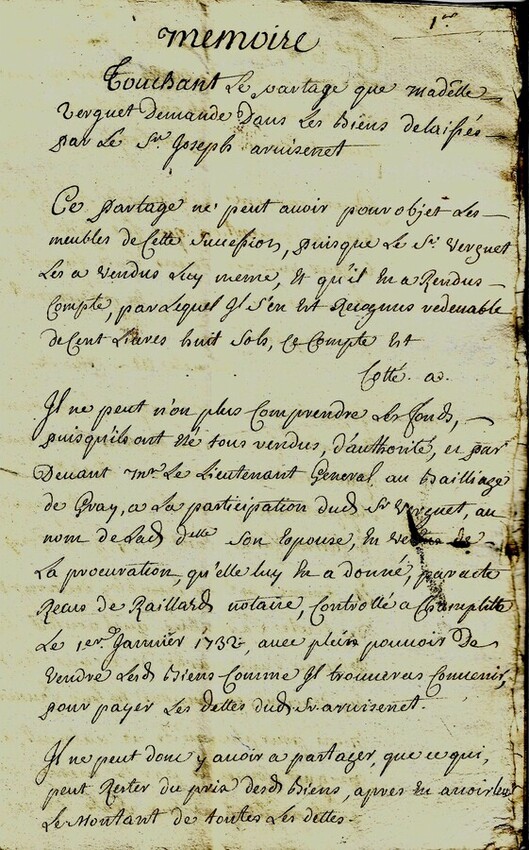 1er
memoire
Touchant Le partage que madelle
Verguet Demande Dans Les biens delaissés
par Le Sr Joseph aruisenet
Ce partage ne peut avoir pour objet Les
meubles de Cette Succession, puisque Le Sr Verguet
Les a Vendus Luy meme, Et qu'il En a Rendus
Compte, par Lequel Il S'en Est Recognus redeuable
de Cent Liures huit Sols, Ce Compte Est
Cotté. a.
Il ne peut n'on plus Comprendre Les fonds,
puisqu'ils ont Eté tous vendus, d'authorité, et par
Deuant mr Le Lieutenant General au bailliage
de Gray, a La participation dud Sr Verguet, au
nom de Lad delle Son Epouse, En vertus de
La procuration, qu'elle luy En a donné, par acte
Receus de Raillard notaire, Controllé a Champlitte
Le 1er Janvier 1732, avec plein pouvoir De
Vendre Lesd biens Comme Il trouueras Convenir,
pour payer Les dettes dud Sr aruisenet.
Il ne peut donc y avoir a partager, que ce qui,
peut Rester du prix desd biens, apres En avoir
Le Montant de toutes Les dettes.